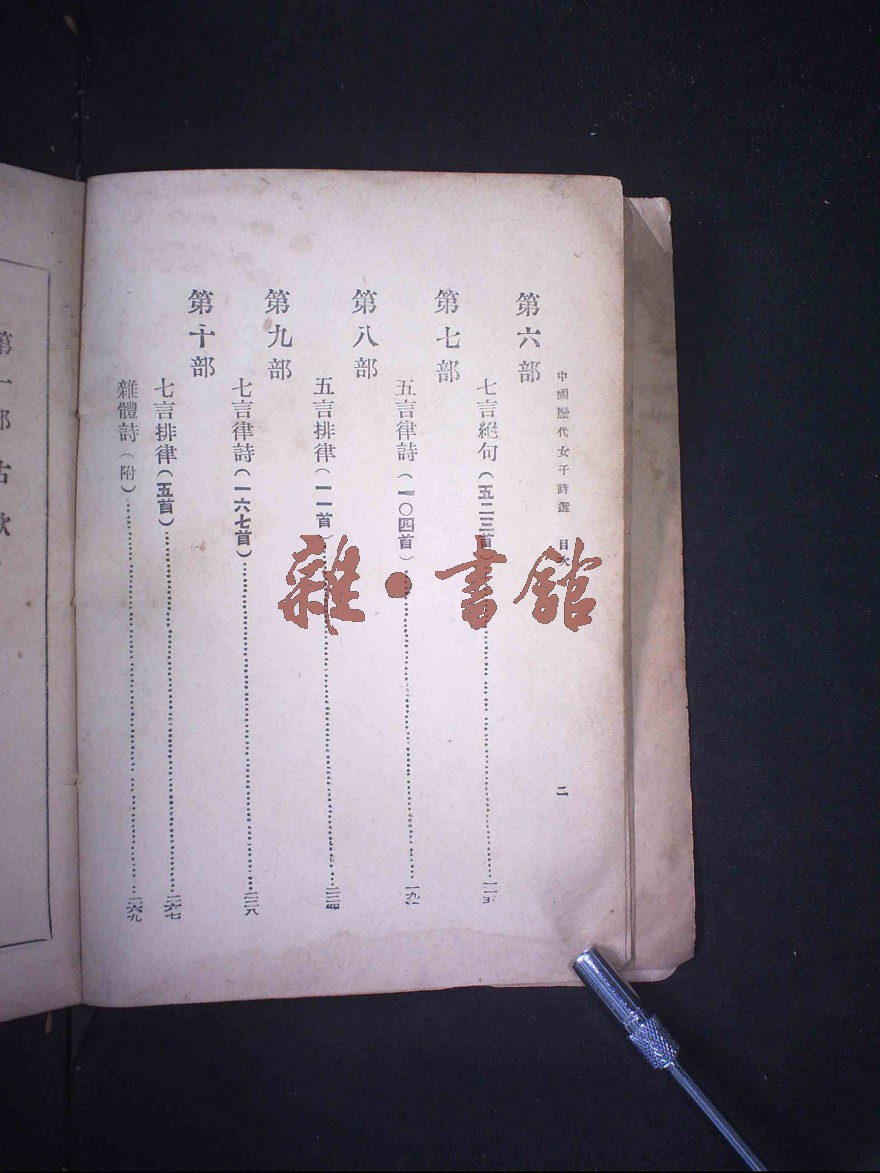 中國歷代女子詩選　目次　二
第六部
七言絕句(五二三首)……一一五
第七部
五言律詩(一〇四首)……
第八部
五言排律(一一首)……
第九部
七言律詩(一六七首)……
第十部
七言排律(五首)……二六七
雜體詩(附)……二六九
第一部古歌
雜·書館